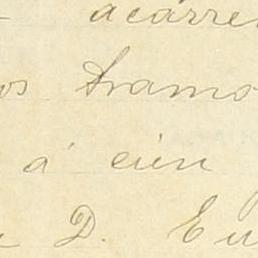 acarre
os tramo
á cien
D. Eu